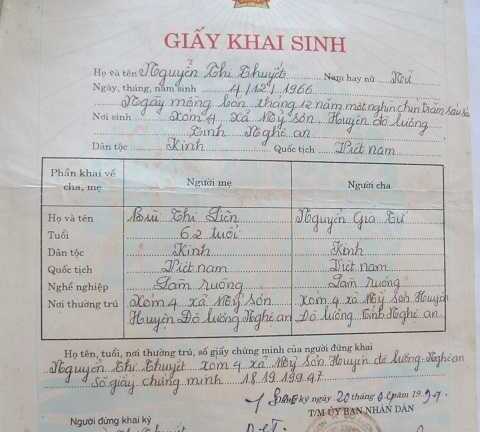 GIẤY KHAI SINH
Họ và tên Nguyễn Thị Thuyết Nam hay nữ Nữ
Ngày, tháng, năm sinh 4/12/1966
Ngày mồng bốn tháng 12 năm một nghìn chín trăm sáu sáu
Nơi sinh xóm 4 xã Mỹ Sơn Huyện đô lương
Tỉnh Nghệ an
Dân tộc Kinh Quốc tịch Việt nam
Phần khai về cha, mẹ Người mẹ Người cha
Họ và tên Bùi Thị Liên Nguyễn Gia Tứ
Tuổi 62 tuổi
Dân tộc Kinh Kinh
Quốc tịch Việt nam Việt nam
Nghề nghiệp Làm ruộng Làm ruộng
Nơi thường trú Xóm 4 xã Mỹ Sơn xóm 4 xã Mỹ Sơn Huyện
Huyện Đô lương Nghệ an Đô lương Tỉnh Nghệ an
Họ, tên, tuổi, nơi thường trú, số giấy chứng minh của người đứng khai
Nguyễn Thị Thuyết xóm 4 xã Mỹ Sơn Huyện đô lương Nghệ an
Số giấy chứng minh 181919947
Đăng ký ngày 20 tháng 04 năm 1999
T/M ỦY BAN NHÂN DÂN
Người đứng khai ký